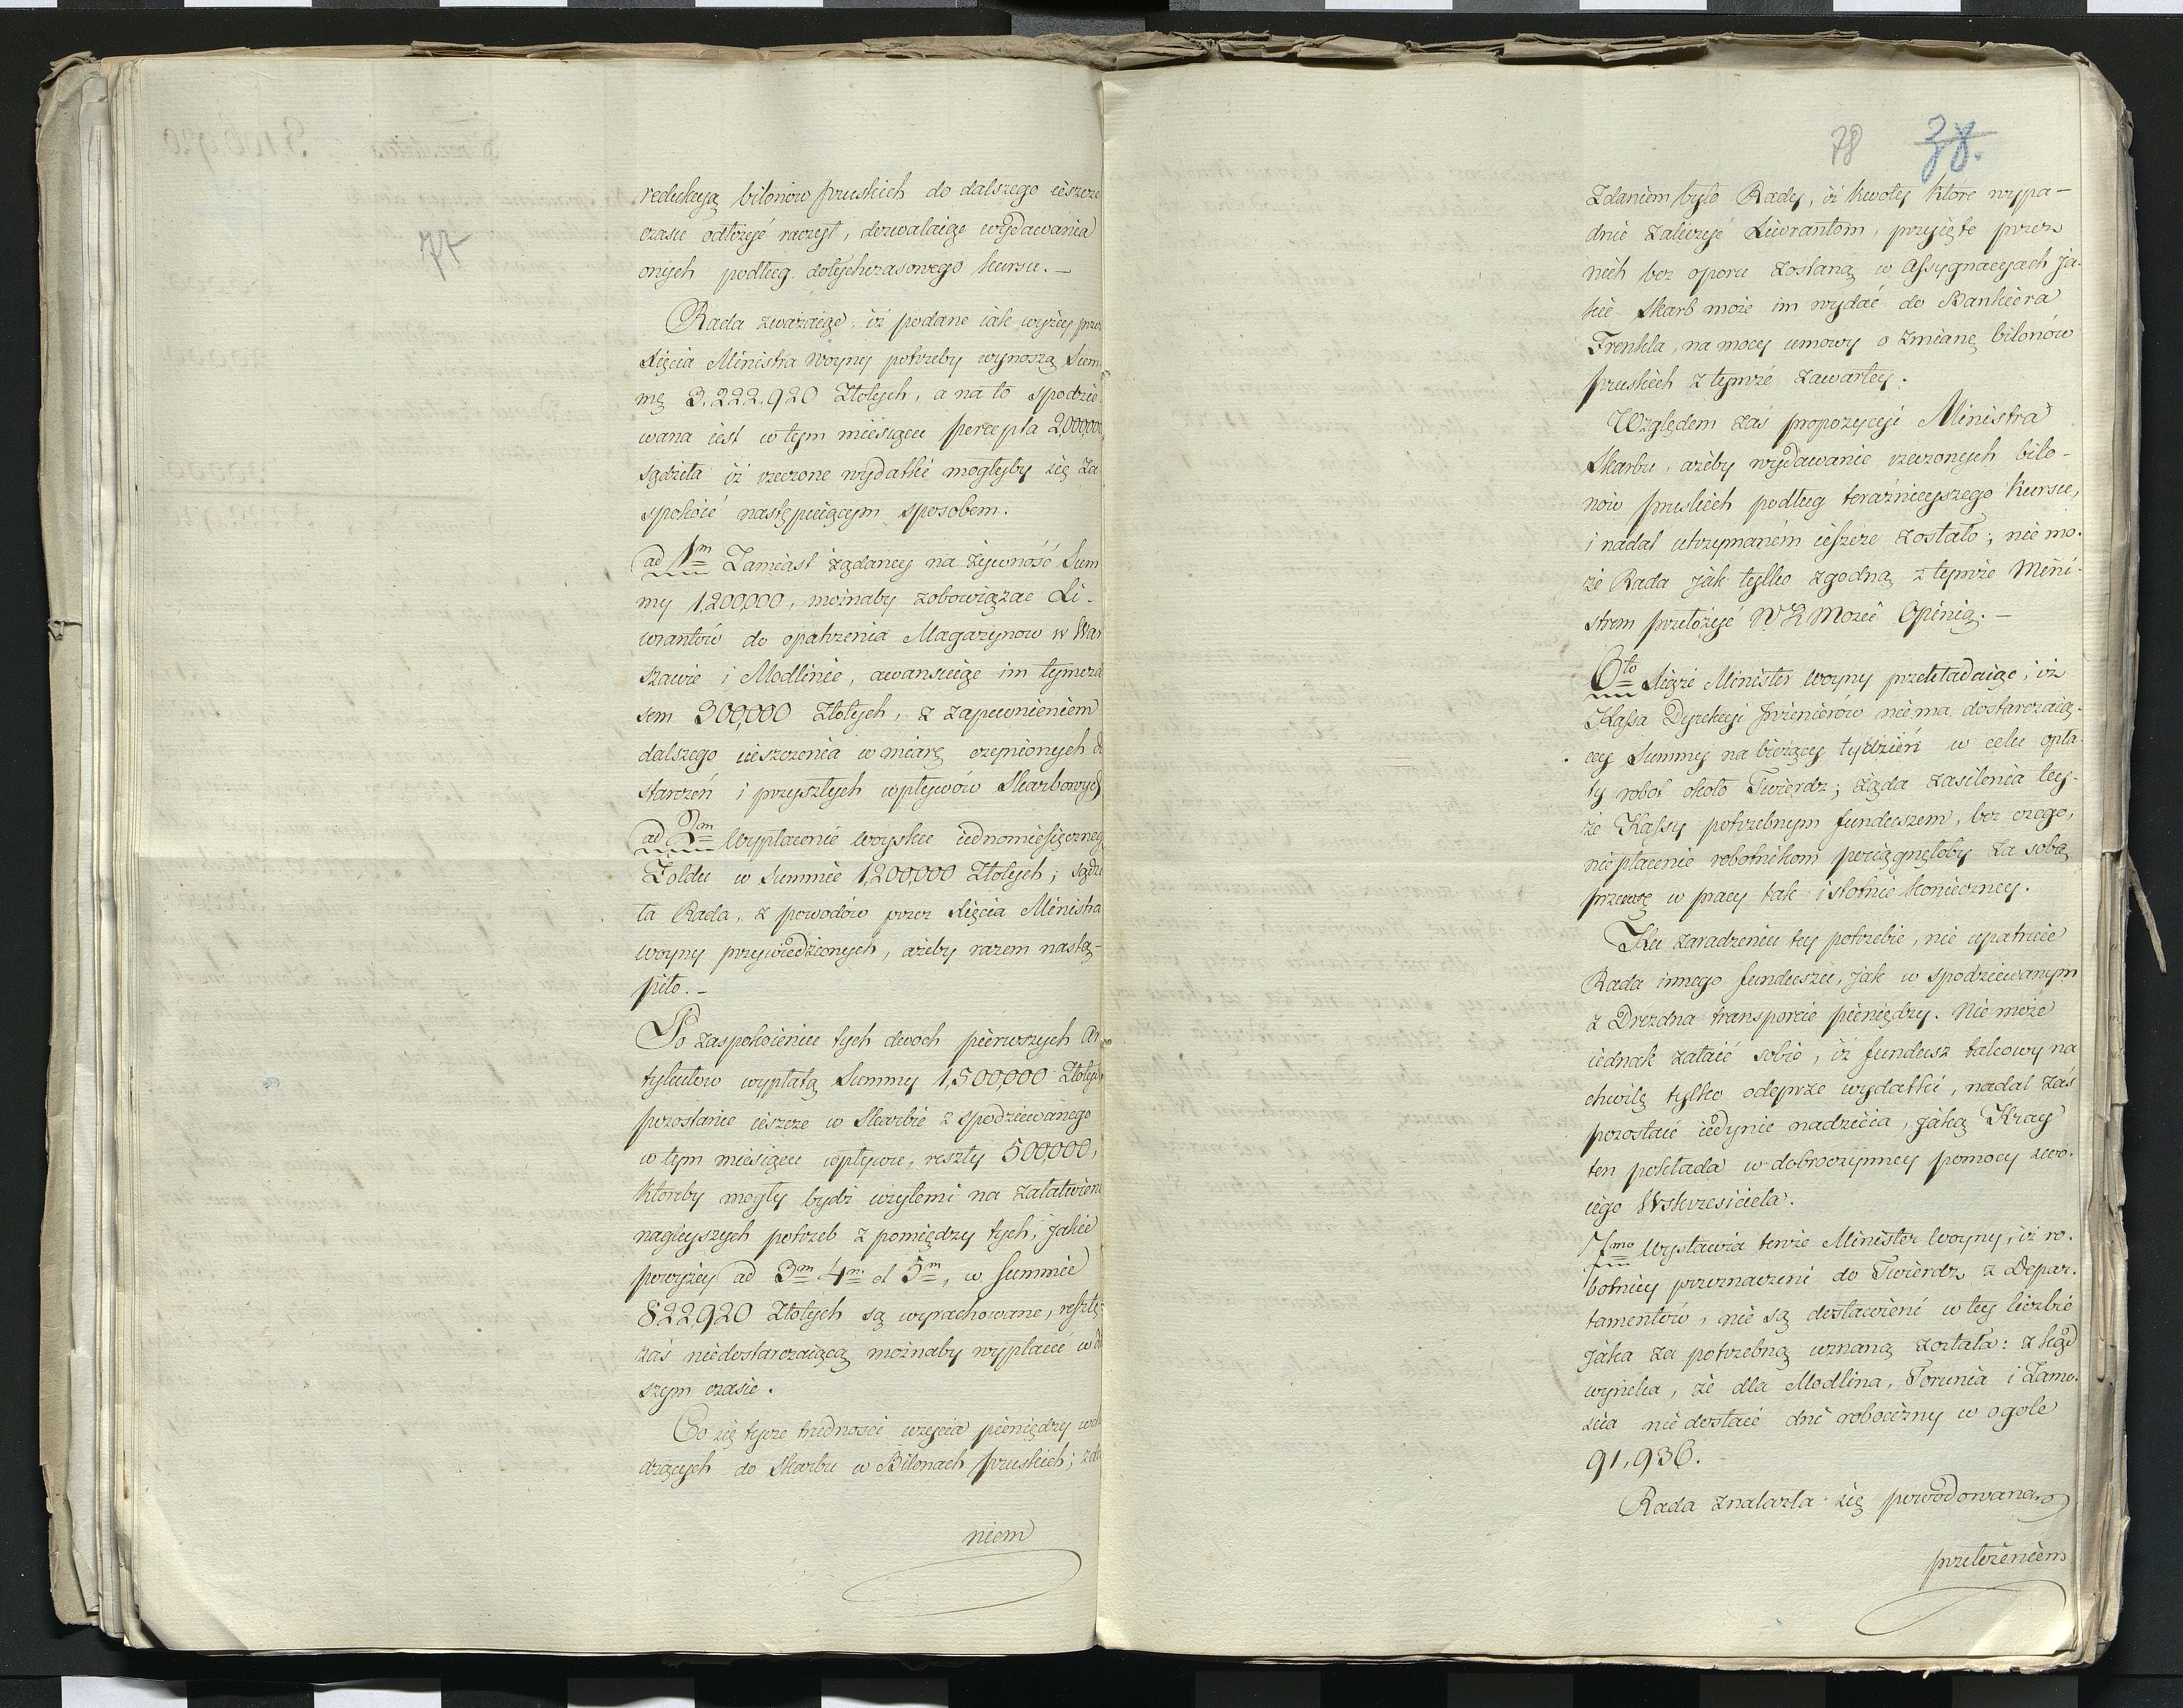 77
redukcyą bilonów pruskich do dalszego ieszcze
czasu odłożyć raczył, dozwalaiąc wydawania
onych podług dotychczasowego kursu. —
Rada zważaiąc, iż podane iak wyżey prze
Xięcia Ministra Woyny potrzeby wynoszą Sum
mę 3,222,920 Złotych, a na to spodzie
wana iest w tym miesiącu percepta 2,000,000
sądziła iż rzeczone wydatki mogłyby się za
spokoić następuiącym sposobem.
ad 1m Zamiast żądaney na żywność Sum
my 1,200,000, możnaby zobowiązac Li-
wrantów do opatrzenia Magazynow w War
szawie i Modlinie, awansuiąc im tymcza
sem 300,000 Złotych, z zapewnieniem
dalszego uiszczenia w miarę czynionych do
starczeń i przyszłych wpływów Skarbowych
ad 2m Wypłacenie woysku iednomiesięczneg
Żołdu w Summie 1,200,000 Złotych; sądzi
ła Rada, z powodów przez Xięcia Ministra
woyny przywiedzionych, ażeby razem nastą-
piło. —
Po zaspokoieniu tych dwoch pierwszych Ar
tykułow wypłatą Summy 1,500,000 Złotych
pozostanie ieszcze w Skarbie z spodziewanego
w tym miesiącu wpływu, reszty 500,000,
któreby mogły bydź użytemi na załatwieni
nagleyszych potrzeb z pomiędzy tych, jakie
powyżey ad 3m 4m et 5m, w Summie
822,920 Złotych są wyrachowane, resztę
zaś niedostarczaiącą możnaby wypłacić w dal
szym czasie.
Co się tycze trudności użycia pieniędzy wcho
dzących do Skarbu w Bilonach pruskich; zda
niem
78 38.
Zdaniem było Rady, iż kwoty które wypa-
dnie zaliczyć Liwrantom, przyięte przez
nich bez oporu zostaną w Assygnacyach ja-
kie Skarb może im wydać do Bankiera
Frenkla, na mocy umowy o zmianę bilonów
pruskich z tymże zawartey.
Względem zaś propozycyi Ministra
Skarbu, ażeby wydawanie rzeczonych bilo-
nów pruskich podług teraźnieyszego kursu,
i nadal utrzymaném ieszcze zostało; nie mo-
że Rada jak tylko zgodną z tymże Mini-
strem przełożyć W K Mości Opinią. —
6to Xiąże Minister Woyny przekładaiąc, iż
Kassa Dyrekcyi Jnżenierów nie ma dostarczaią-
cey Summy na bieżący tydzień w celu opła-
ty robot około Twierdz; żąda zasilenia tey-
że Kassy potrzebnym funduszem, bez czego,
niepłacenie robotnikom pociągnęłoby za sobą
przerwę w pracy tak istotnie konieczney.
Ku zaradzeniu tey potrzebie, nie upatruie
Rada innego funduszu, jak w spodziewanym
z Drezdna transporcie pieniędzy. Nie może
iednak zataić sobie, iż fundusz takowy na
chwilę tylko odeprze wydatki, nadal zaś
pozostaie iedynie nadzieia, jaką Kray
ten pokłada w dobroczynney pomocy swo-
iego Wskrzesiciela.
7mo Wystawia tenże Minister Woyny, iż ro-
botnicy przeznaczeni do Twierdz z Depar-
tamentów, nie są dostawieni w tey liczbie
jaka za potrzebną uznaną została: z kąd
wynika, że dla Modlina, Torunia i Zamo-
ścia nie dostaie dni robocizny w ogole
91,936.
Rada znalazła się powodowaną
przełożeniem